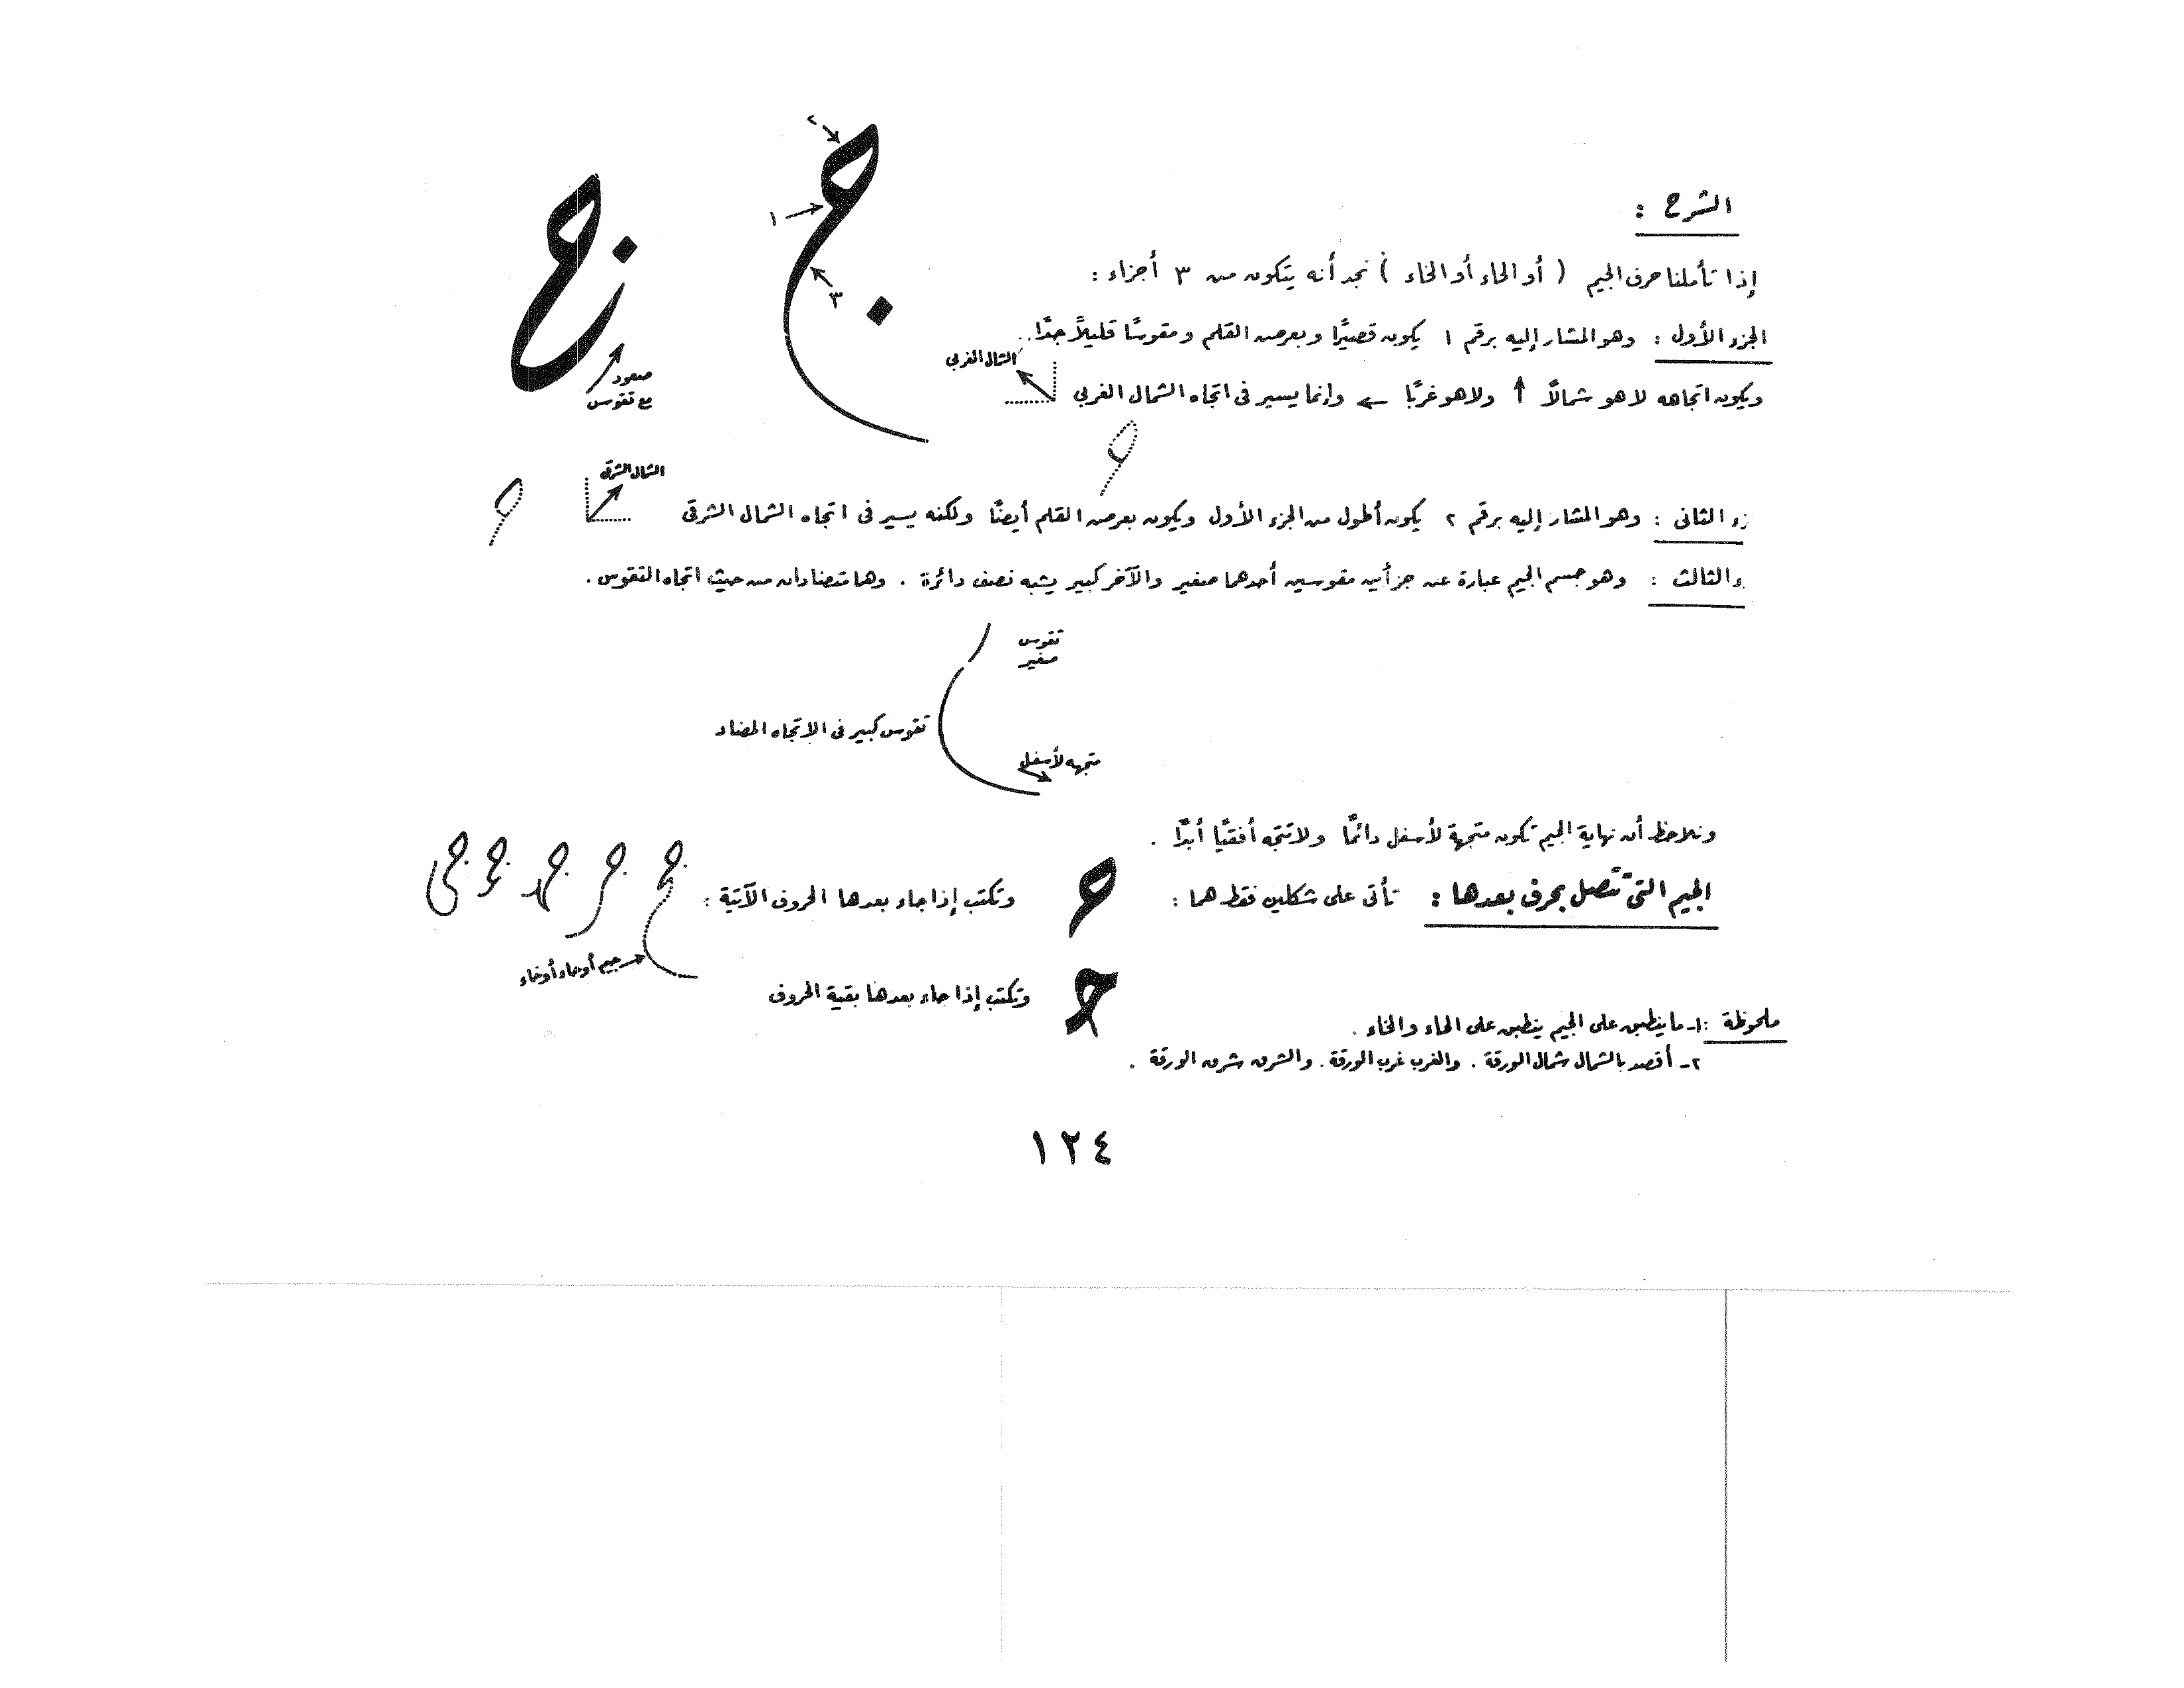 الشرح :
إذا تأملنا حرف الجيم ( أو الحاء أو الخاء ) نجد أنه يتكون من ٣ أجزاء :
الجزء الأول : وهو المشار إليه برقم ١ يكون قصيرًا وبعرض القلم ومقوسًا قليلاً جدًا .
ويكون اتجاهه لا هو شمالاً ↑ ولا هو غربًا ← وإنما يسير فى اتجاه الشمال الغربى
الشمال الغربى
٢
١
٣
صعود
مع تقوس
زء الثانى : وهو المشار إليه برقم ٢ يكون أطول من الجزء الأول ويكون بعرض القلم أيضًا ولكنه يسير فى اتجاه الشمال الشرقى
الشمال الشرقى
ء الثالث : وهو جسم الجيم عبارة عن جزأين مقوسين أحدهما صغير والآخر كبير يشبه نصف دائرة . وهما متضادان من حيث اتجاه التقوس .
تقوس
صغير
تقوس كبير فى الاتجاه المضاد
متجهه لأسفل
ونلاحظ أن نهاية الجيم تكون متجهة لأسفل دائمًا ولا تتجه أفقيًا أبدًا .
الجيم التى تتصل بحرف بعدها : تأتى على شكلين فقط هما :
وتكتب إذا جاء بعدها الحروف الآتية :
جيم أو حاء أو خاء
وتكتب إذا جاء بعدها بقية الحروف
ملحوظة : ١- ما ينطبق على الجيم ينطبق على الحاء والخاء .
٢- أقصد بالشمال شمال الورقة . والغرب غرب الورقة . والشرق شرق الورقة .
١٢٤